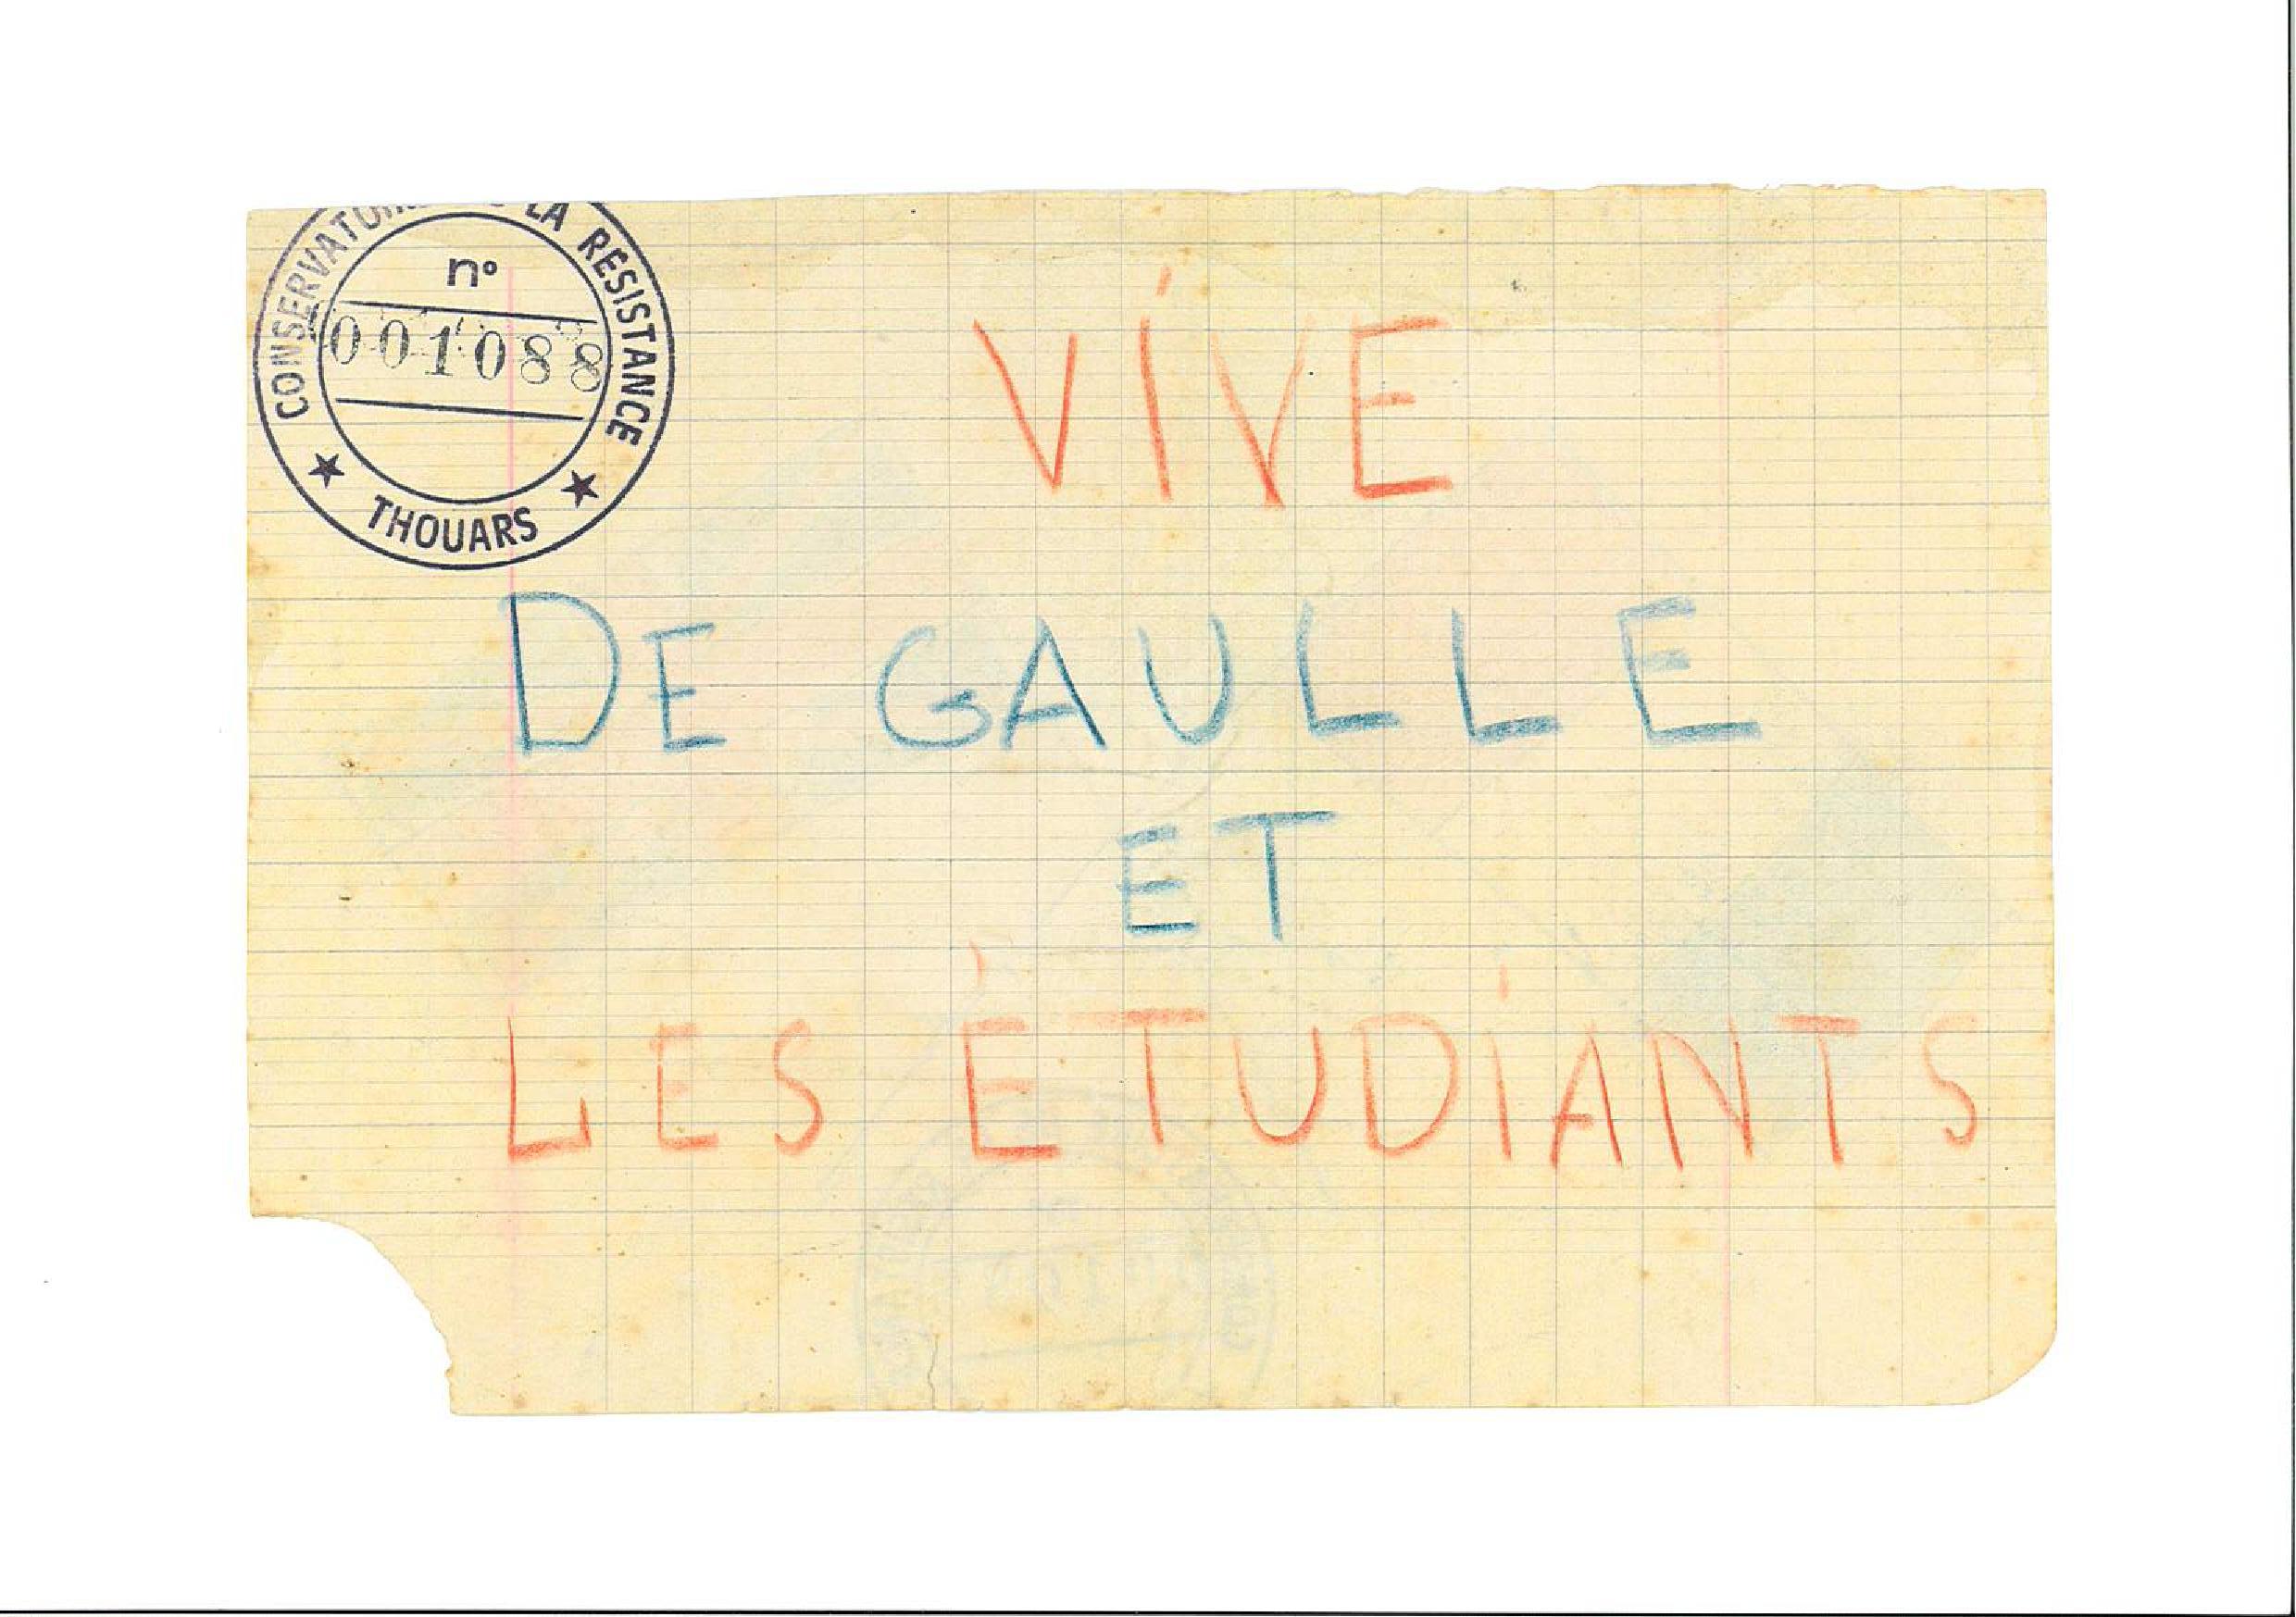 CONSERVATOIRE DE LA RESISTANCE
n°
001088
★ THOUARS ★
VIVE
DE GAULLE
ET
LES ÈTUDIANTS